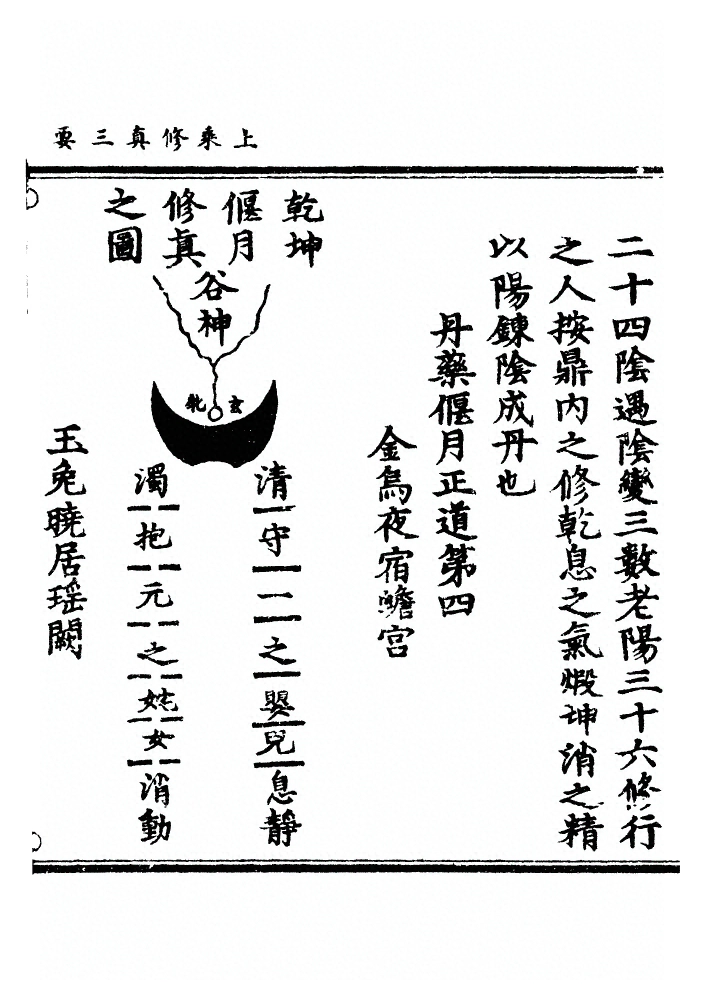 上乘修真三要
二十四陰遇陰變三數老陽三十六修行
之人按鼎內之修乾息之氣煆坤消之精
以陽鍊陰成丹也
丹藥偃月正道第四
金烏夜宿蟾宮
乾坤
偃月
修真
之圖
谷神
玄
牝
清守一二之嬰兒息靜
濁抱元之姹女消動
玉兔曉居瑶闕